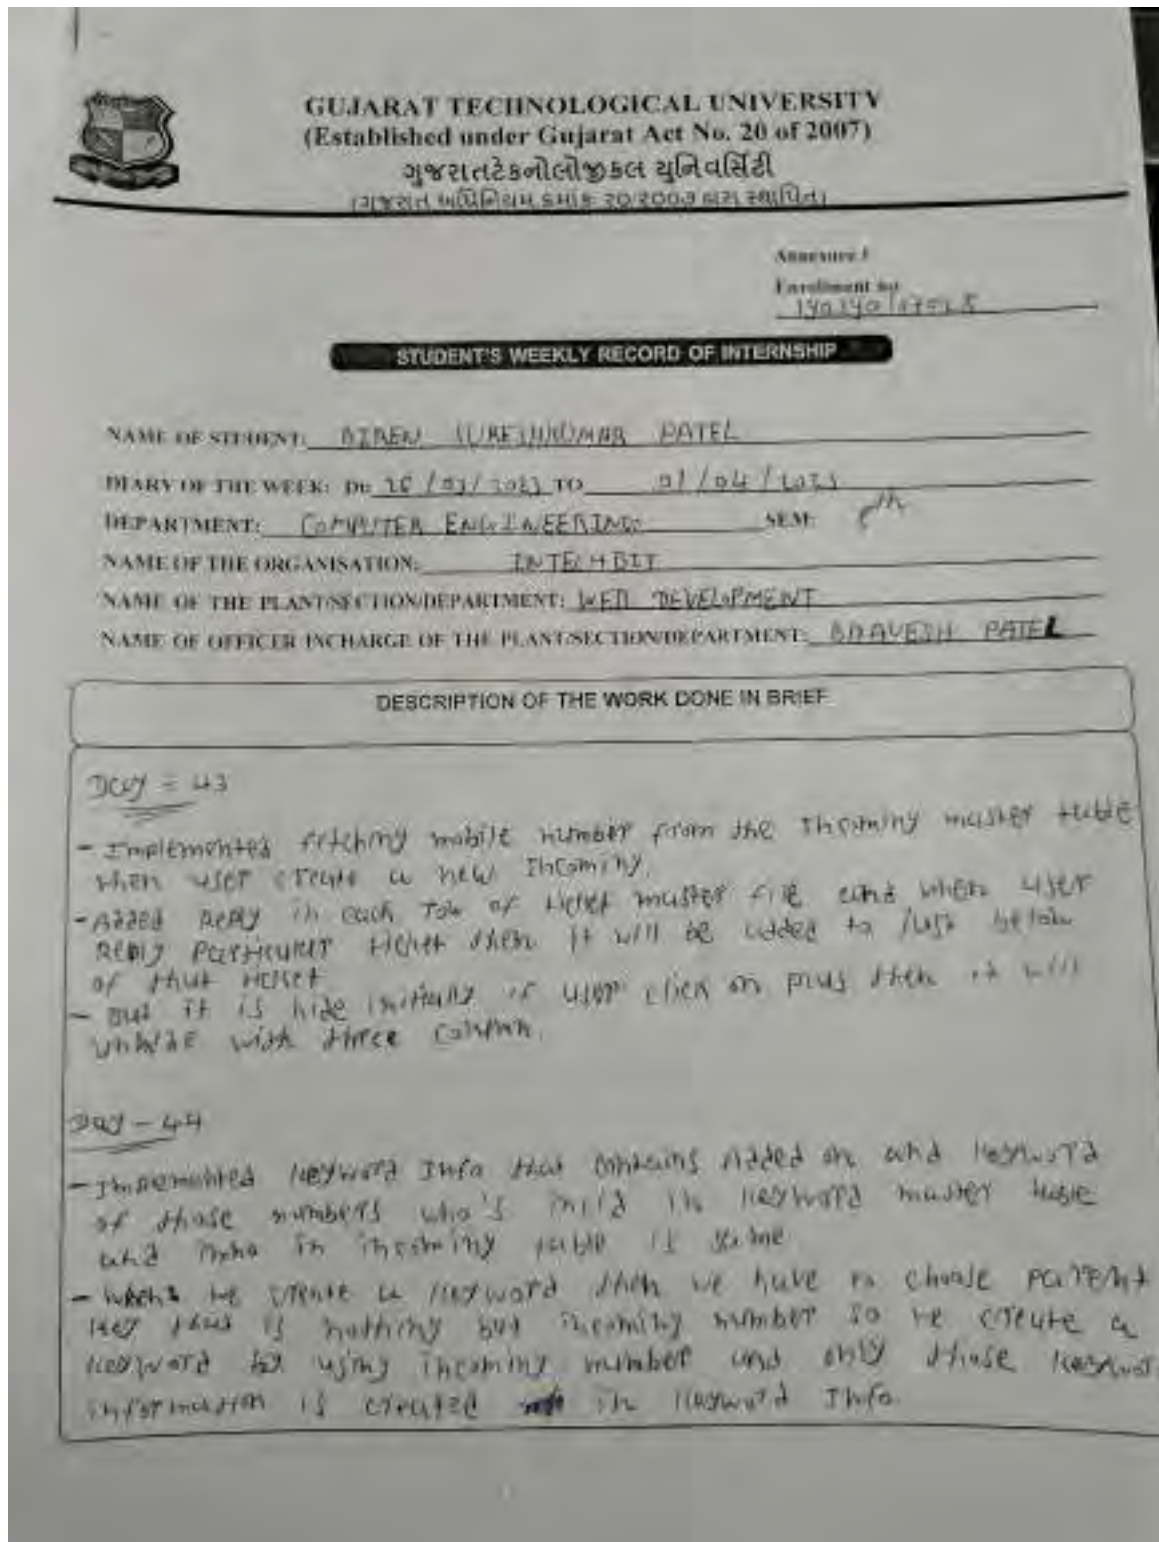 GUJARAT TECHNOLOGICAL UNIVERSITY
(Established under Gujarat Act No. 20 of 2007)
ગુજરાતટેકનોલોજીકલ યુનિવર્સિટી
(ગુજરાત અધિનિયમ ક્રમાંક: ૨૦/૨૦૦૭ દ્વારા સ્થાપિત)
Annexure
Enrollment no
STUDENT'S WEEKLY RECORD OF INTERNSHIP
NAME OF STUDENT: PATEL
DIARY OF THE WEEK: TO 01/04/2023
DEPARTMENT: COMPUTER ENGINEERING SEM:
NAME OF THE ORGANISATION: INTECHBIT
NAME OF THE PLANT/SECTION/DEPARTMENT: WEB DEVELOPMENT
NAME OF OFFICER INCHARGE OF THE PLANT/SECTION/DEPARTMENT: BHAVESH PATEL
DESCRIPTION OF THE WORK DONE IN BRIEF
Day = 43
- Implemented fetching mobile number from the Incoming master table
when user create a new Incoming.
- Added Reply in each row of ticket master file and when user
Reply Particular ticket then it will be added to just below
of that ticket
- But it is hide initially if user click on plus then it will
unhide with three column.
Day - 44
- Implemented keyword Info that contains Added on and keyword
of those numbers who's in keyword master table
and in incoming table is same
- we create a keyword then we have to choose parent
key that is nothing but incoming number so we create a
keyword by using incoming number and only those
information is created in keyword Info.